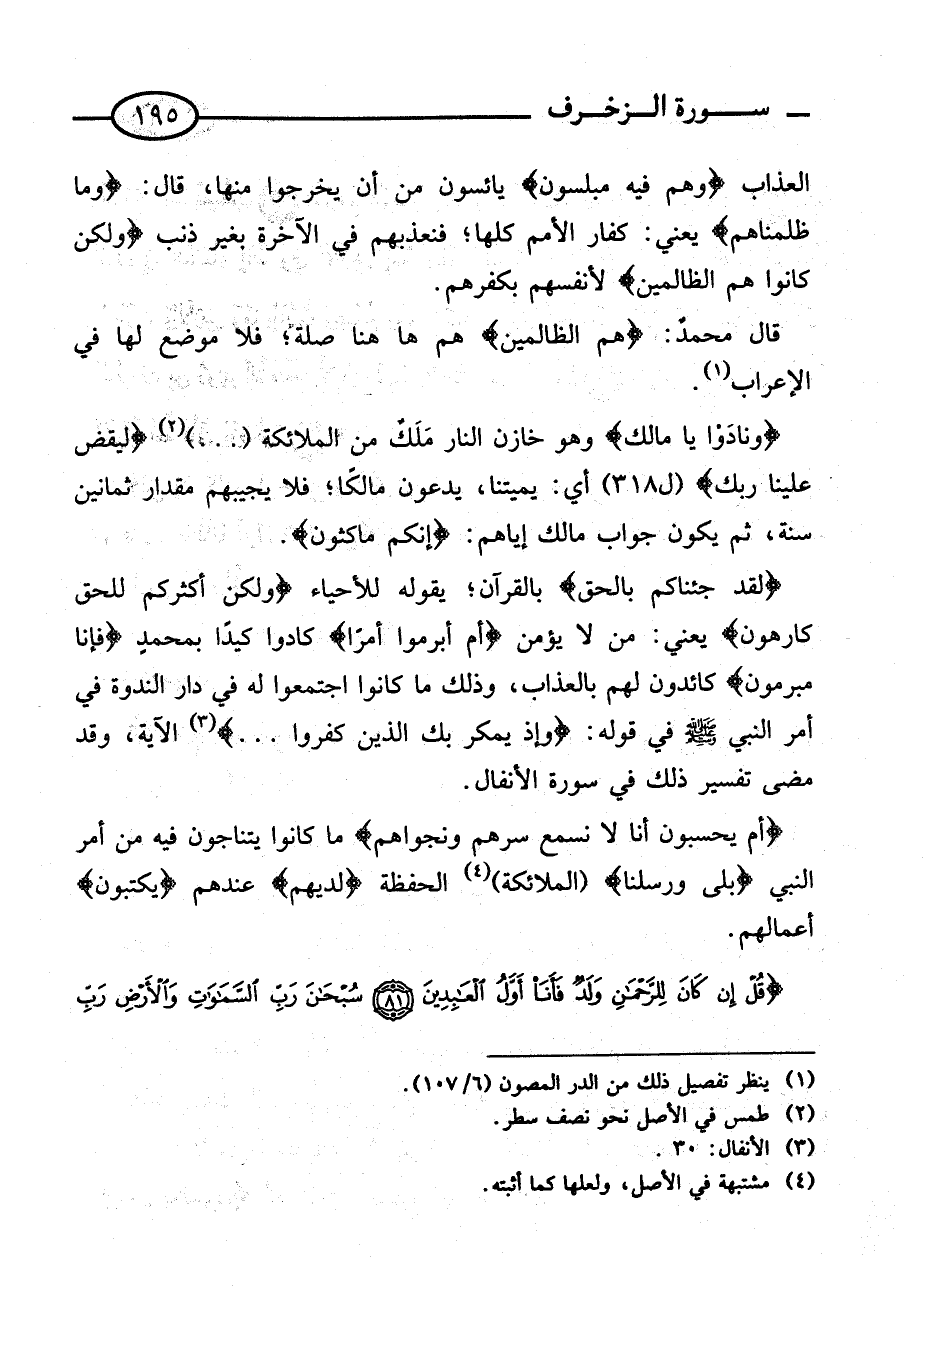 سـورة الـزخـرف ١٩٥
العذاب ﴿وهم فيه مبلسون﴾ يائسون من أن يخرجوا منها، قال: ﴿وما
ظلمناهم﴾ يعني: كفار الأمم كلها؛ فنعذبهم في الآخرة بغير ذنب ﴿ولكن
كانوا هم الظالمين﴾ لأنفسهم بكفرهم.
قال محمدٌ: ﴿هم الظالمين﴾ هم ها هنا صلة؛ فلا موضع لها في
الإعراب(١).
﴿ونادَوْا يا مالك﴾ وهو خازن النار مَلَكٌ من الملائكة (...)(٢) ﴿ليقض
علينا ربك﴾ (ل٣١٨) أي: يميتنا، يدعون مالكًا؛ فلا يجيبهم مقدار ثمانين
سنة، ثم يكون جواب مالك إياهم: ﴿إنكم ماكثون﴾.
﴿لقد جئناكم بالحق﴾ بالقرآن؛ يقوله للأحياء ﴿ولكن أكثركم للحق
كارهون﴾ يعني: من لا يؤمن ﴿أم أبرموا أمرًا﴾ كادوا كيدًا بمحمدٍ ﴿فإنا
مبرمون﴾ كائدون لهم بالعذاب، وذلك ما كانوا اجتمعوا له في دار الندوة في
أمر النبي ﷺ في قوله: ﴿وإذ يمكر بك الذين كفروا ...﴾(٣) الآية، وقد
مضى تفسير ذلك في سورة الأنفال.
﴿أم يحسبون أنا لا نسمع سرهم ونجواهم﴾ ما كانوا يتناجون فيه من أمر
النبي ﴿بلى ورسلنا﴾ (الملائكة)(٤) الحفظة ﴿لديهم﴾ عندهم ﴿يكتبون﴾
أعمالهم.
﴿قُلْ إِن كَانَ لِلرَّحْمَٰنِ وَلَدٌ فَأَنَا۠ أَوَّلُ ٱلْعَٰبِدِينَ ٨١ سُبْحَٰنَ رَبِّ ٱلسَّمَٰوَٰتِ وَٱلْأَرْضِ رَبِّ
(١) ينظر تفصيل ذلك من الدر المصون (٦/١٠٧).
(٢) طمس في الأصل نحو نصف سطر.
(٣) الأنفال: ٣٠.
(٤) مشتبهة في الأصل، ولعلها كما أثبته.